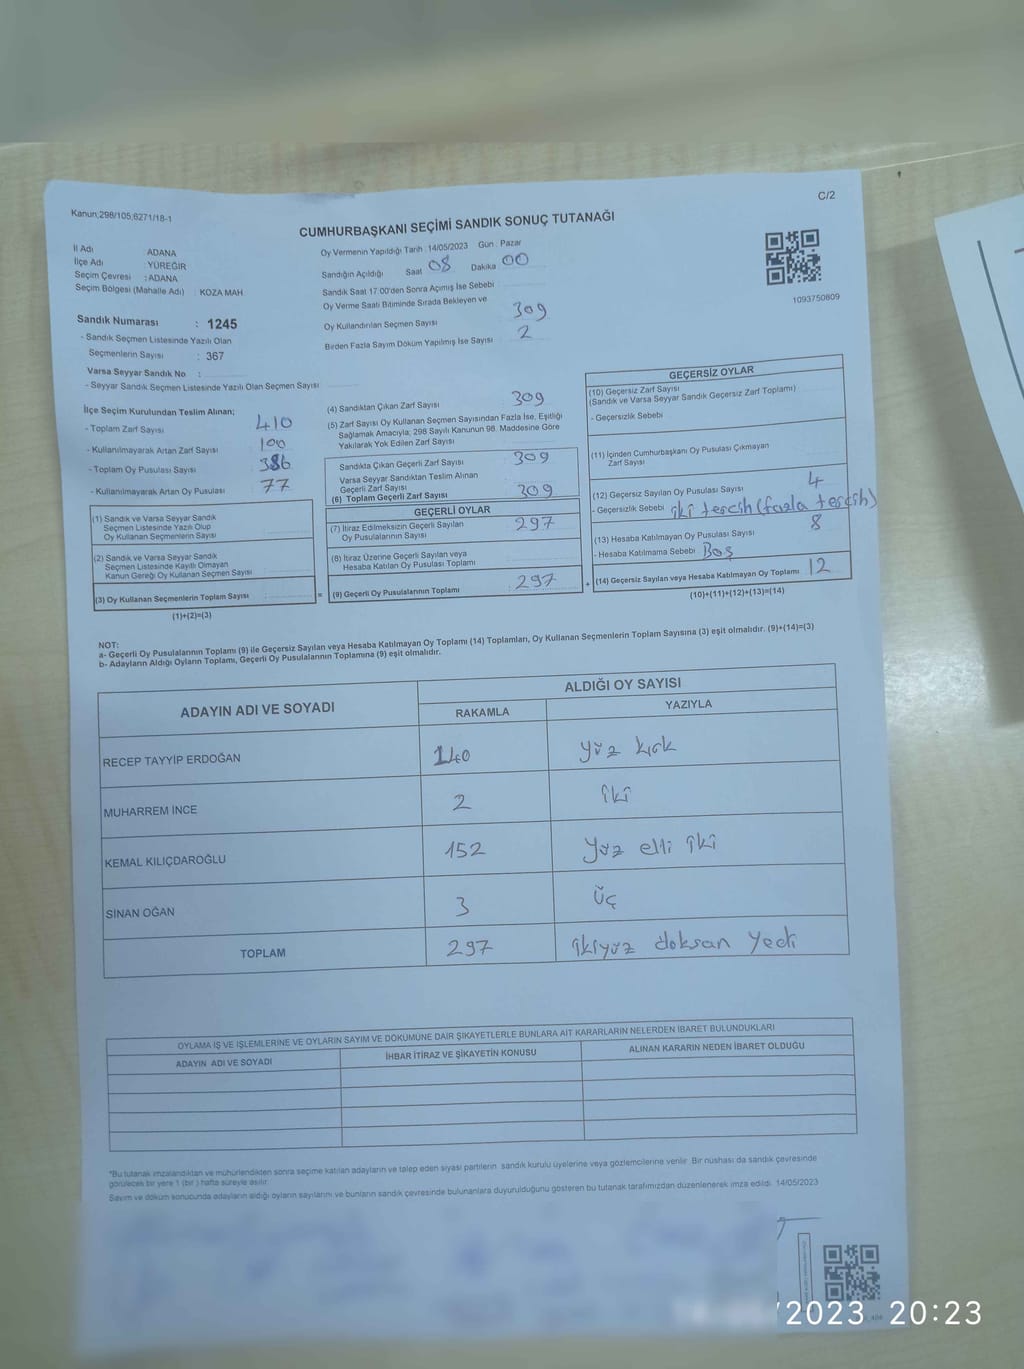 C/2
Kanun;298/105;6271/18-1
CUMHURBAŞKANI SEÇİMİ SANDIK SONUÇ TUTANAĞI
İl Adı ADANA
İlçe Adı : YÜREĞİR
Seçim Çevresi : ADANA
Seçim Bölgesi (Mahalle Adı) : KOZA MAH.
Sandık Numarası : 1245
- Sandık Seçmen Listesinde Yazılı Olan
Seçmenlerin Sayısı : 367
Varsa Seyyar Sandık No :
- Seyyar Sandık Seçmen Listesinde Yazılı Olan Seçmen Sayısı
Oy Vermenin Yapıldığı Tarih : 14/05/2023 Gün : Pazar
Sandığın Açıldığı Saat 08 Dakika 00
Sandık Saat 17.00'den Sonra Açımış İse Sebebi
Oy Verme Saati Bitiminde Sırada Bekleyen ve
Oy Kullandırılan Seçmen Sayısı 309
Birden Fazla Sayım Döküm Yapılmış İse Sayısı 2
1093750809
İlçe Seçim Kurulundan Teslim Alınan;
- Toplam Zarf Sayısı 410
- Kullanılmayarak Artan Zarf Sayısı 100
- Toplam Oy Pusulası Sayısı 386
- Kullanılmayarak Artan Oy Pusulası 77
(1) Sandık ve Varsa Seyyar Sandık
Seçmen Listesinde Yazılı Olup
Oy Kullanan Seçmenlerin Sayısı
(2) Sandık ve Varsa Seyyar Sandık
Seçmen Listesinde Kayıtlı Olmayan
Kanun Gereği Oy Kullanan Seçmen Sayısı
(3) Oy Kullanan Seçmenlerin Toplam Sayısı
(1)+(2)=(3)
=
(4) Sandıktan Çıkan Zarf Sayısı 309
(5) Zarf Sayısı Oy Kullanan Seçmen Sayısından Fazla İse, Eşitliği
Sağlamak Amacıyla; 298 Sayılı Kanunun 98. Maddesine Göre
Yakılarak Yok Edilen Zarf Sayısı
Sandıkta Çıkan Geçerli Zarf Sayısı 309
Varsa Seyyar Sandıktan Teslim Alınan
Geçerli Zarf Sayısı
(6) Toplam Geçerli Zarf Sayısı 309
GEÇERLİ OYLAR
(7) İtiraz Edilmeksizin Geçerli Sayılan
Oy Pusulalarının Sayısı 297
(8) İtiraz Üzerine Geçerli Sayılan veya
Hesaba Katılan Oy Pusulası Toplamı
(9) Geçerli Oy Pusulalarının Toplamı 297
+
GEÇERSİZ OYLAR
(10) Geçersiz Zarf Sayısı
(Sandık ve Varsa Seyyar Sandık Geçersiz Zarf Toplamı)
- Geçersizlik Sebebi
(11) İçinden Cumhurbaşkanı Oy Pusulası Çıkmayan
Zarf Sayısı
(12) Geçersiz Sayılan Oy Pusulası Sayısı 4
- Geçersizlik Sebebi iki tercih (fazla tercih)
(13) Hesaba Katılmayan Oy Pusulası Sayısı 8
- Hesaba Katılmama Sebebi Boş
(14) Geçersiz Sayılan veya Hesaba Katılmayan Oy Toplamı 12
(10)+(11)+(12)+(13)=(14)
NOT:
a- Geçerli Oy Pusulalarının Toplamı (9) ile Geçersiz Sayılan veya Hesaba Katılmayan Oy Toplamı (14) Toplamları, Oy Kullanan Seçmenlerin Toplam Sayısına (3) eşit olmalıdır. (9)+(14)=(3)
b- Adayların Aldığı Oyların Toplamı, Geçerli Oy Pusulalarının Toplamına (9) eşit olmalıdır.
ADAYIN ADI VE SOYADI ALDIĞI OY SAYISI
RAKAMLA YAZIYLA
RECEP TAYYİP ERDOĞAN 140 yüz kırk
MUHARREM İNCE 2 iki
KEMAL KILIÇDAROĞLU 152 yüz elli iki
SİNAN OĞAN 3 üç
TOPLAM 297 ikiyüz doksan yedi
OYLAMA İŞ VE İŞLEMLERİNE VE OYLARIN SAYIM VE DÖKÜMÜNE DAİR ŞİKAYETLERLE BUNLARA AİT KARARLARIN NELERDEN İBARET BULUNDUKLARI
ADAYIN ADI VE SOYADI İHBAR İTİRAZ VE ŞİKAYETİN KONUSU ALINAN KARARIN NEDEN İBARET OLDUĞU
*Bu tutanak imzalandıktan ve mühürlendikten sonra seçime katılan adayların ve talep eden siyasi partilerin sandık kurulu üyelerine veya gözlemcilerine verilir. Bir nüshası da sandık çevresinde
görülecek bir yere 1 (bir ) hafta süreyle asılır.
Sayım ve döküm sonucunda adayların aldığı oyların sayılarını ve bunların sandık çevresinde bulunanlara duyurulduğunu gösteren bu tutanak tarafımızdan düzenlenerek imza edildi. 14/05/2023
/2023 20:23